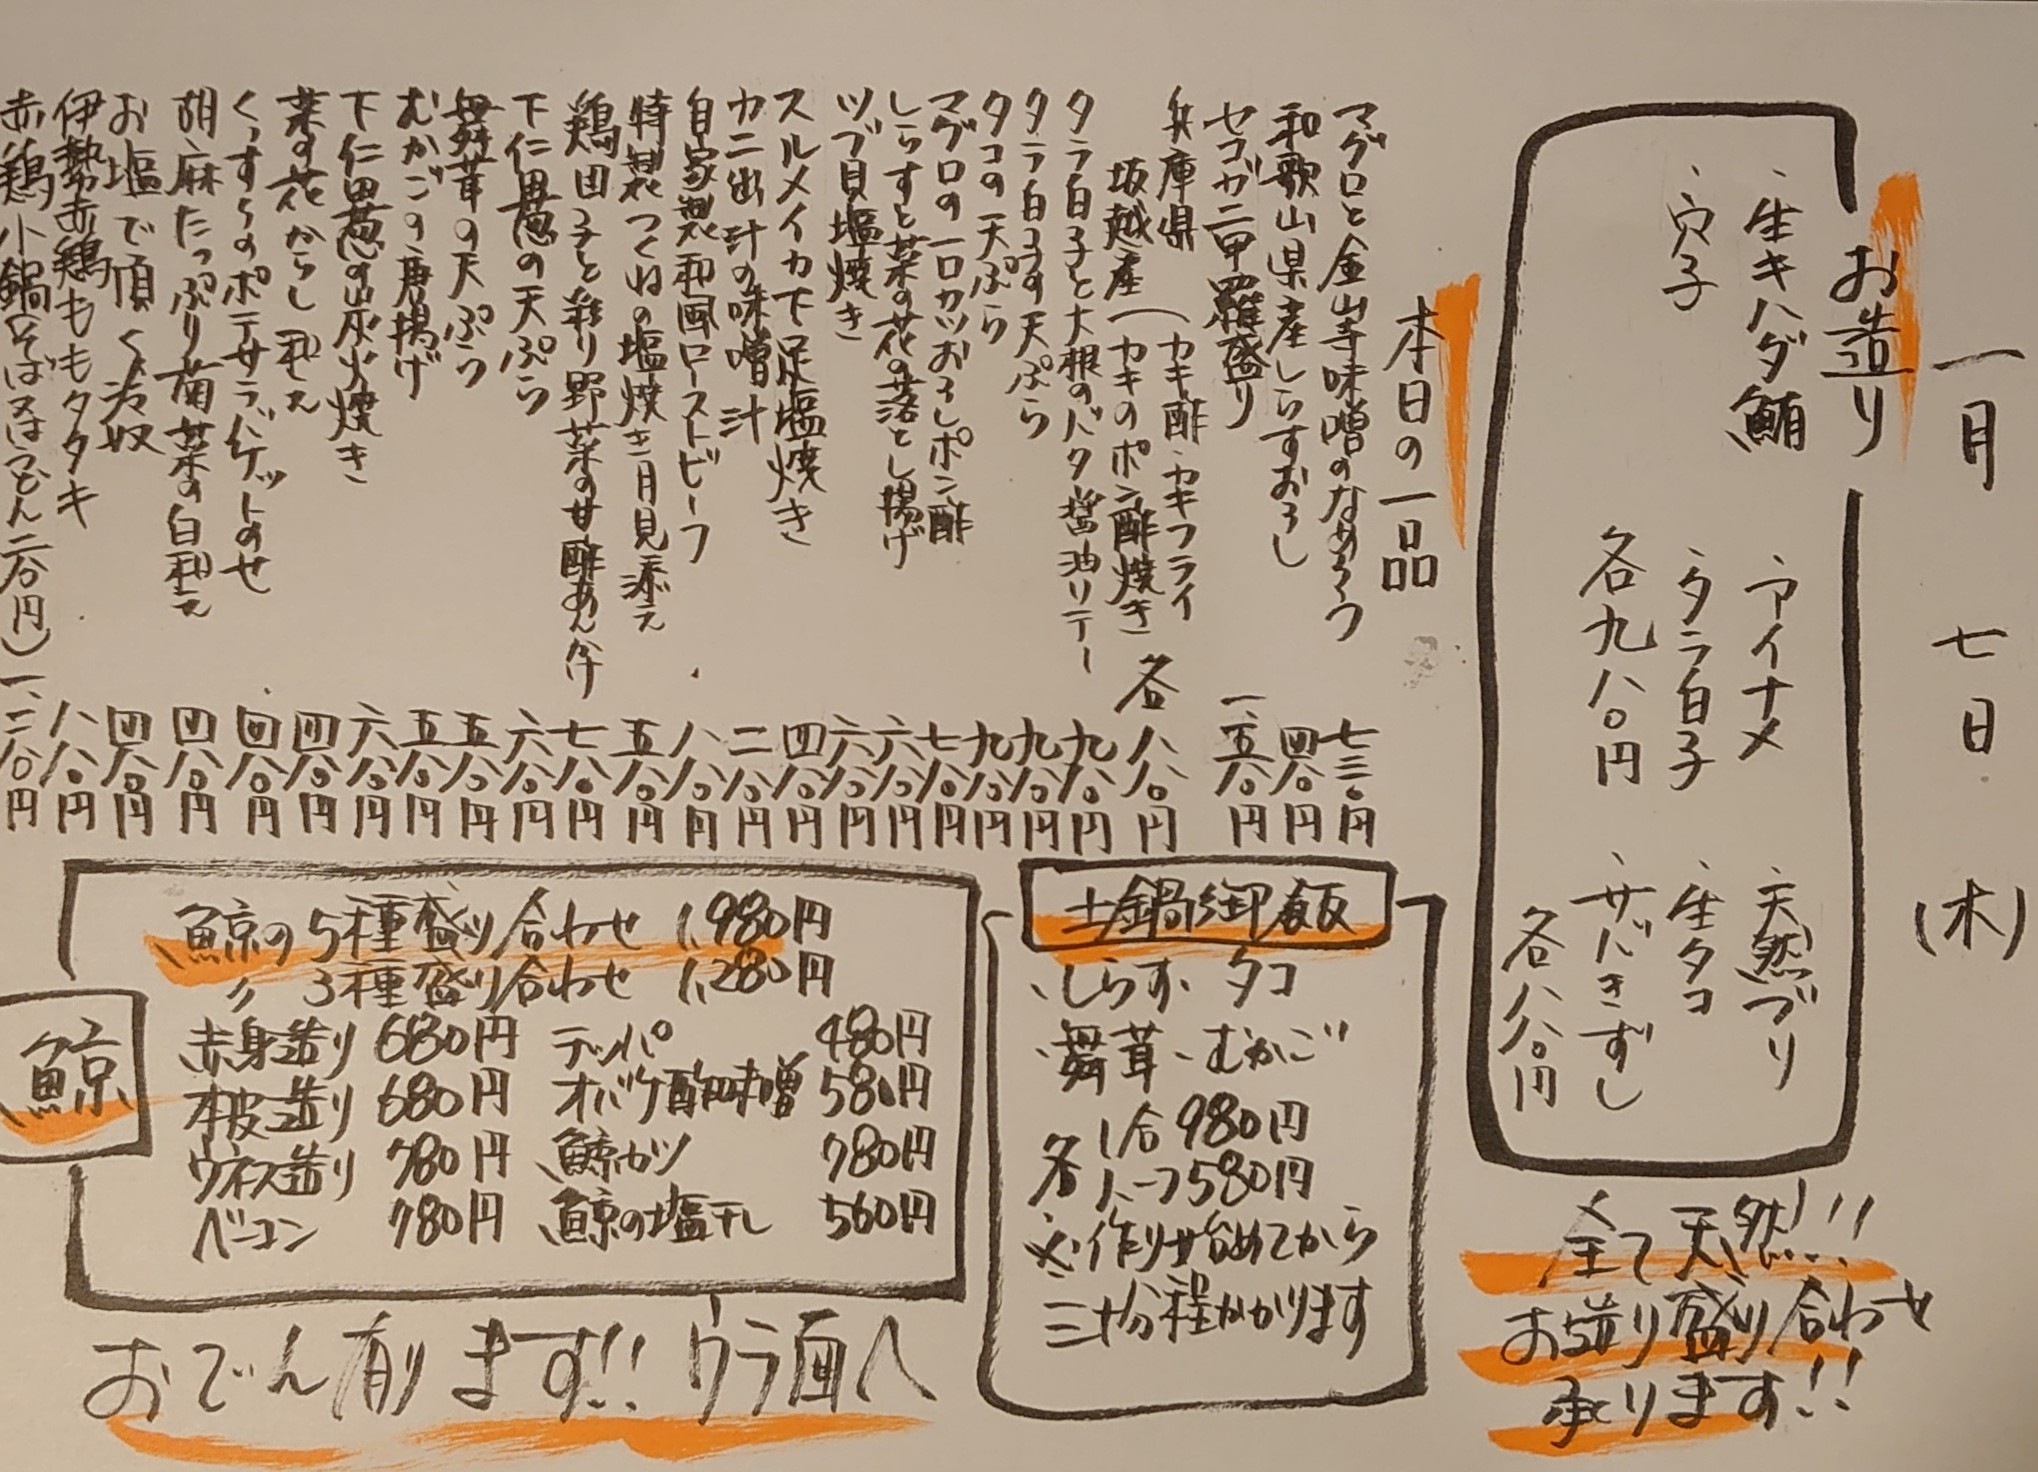 一月 七日 (木)
お造り
・生キハダ鮪 ・アイナメ ・天然ブリ
・穴子 ・タラ白子 ・生タコ
各九八〇円 ・サバきずし
各八八〇円
全て天然!!
お造り盛り合わせ
承ります!!
本日の一品
マグロと金山寺味噌のなめろう 七三〇円
和歌山県産しらすおろし 四八〇円
セコガニ甲羅盛り 一、五八〇円
兵庫県 (カキ酢・カキフライ
坂越産 (カキのポン酢焼き 各八八〇円
タラ白子と大根のバタ醤油ソテー 九八〇円
タラ白子の天ぷら 九八〇円
タコの天ぷら 九八〇円
マグロの一口カツおろしポン酢 七八〇円
しらすと菜の花の落とし揚げ 六八〇円
ツブ貝塩焼き 六八〇円
スルメイカ下足塩焼き 四八〇円
カニ出汁の味噌汁 二八〇円
自家製和風ローストビーフ 八八〇円
特製つくねの塩焼き月見添え 五八〇円
鶏団子と彩り野菜の甘酢あん掛 七八〇円
下仁田葱の天ぷら 六八〇円
舞茸の天ぷら 五八〇円
むかごの唐揚げ 五八〇円
下仁田葱の炭火焼き 六八〇円
菜の花からし和え 四八〇円
くっすらのポテサラバケットのせ 四八〇円
胡麻たっぷり菊菜の白和え 四八〇円
お塩で頂く冷奴 四八〇円
伊勢赤鶏ももタタキ 八八〇円
赤鶏小鍋(そば又はうどん二八〇円) 一、二八〇円
土鍋御飯
・しらす ・タコ
・舞茸 ・むかご
各 1合 980円
ハーフ 580円
※作り始めてから
三十分程かかります
鯨
鯨の5種盛り合わせ 1,980円
〃 3種盛り合わせ 1,280円
赤身造り 680円 テッパ 480円
本皮造り 680円 オバケ酢味噌 580円
ウネス造り 780円 鯨カツ 780円
ベーコン 780円 鯨の塩干し 560円
おでん有ります!! ウラ面へ